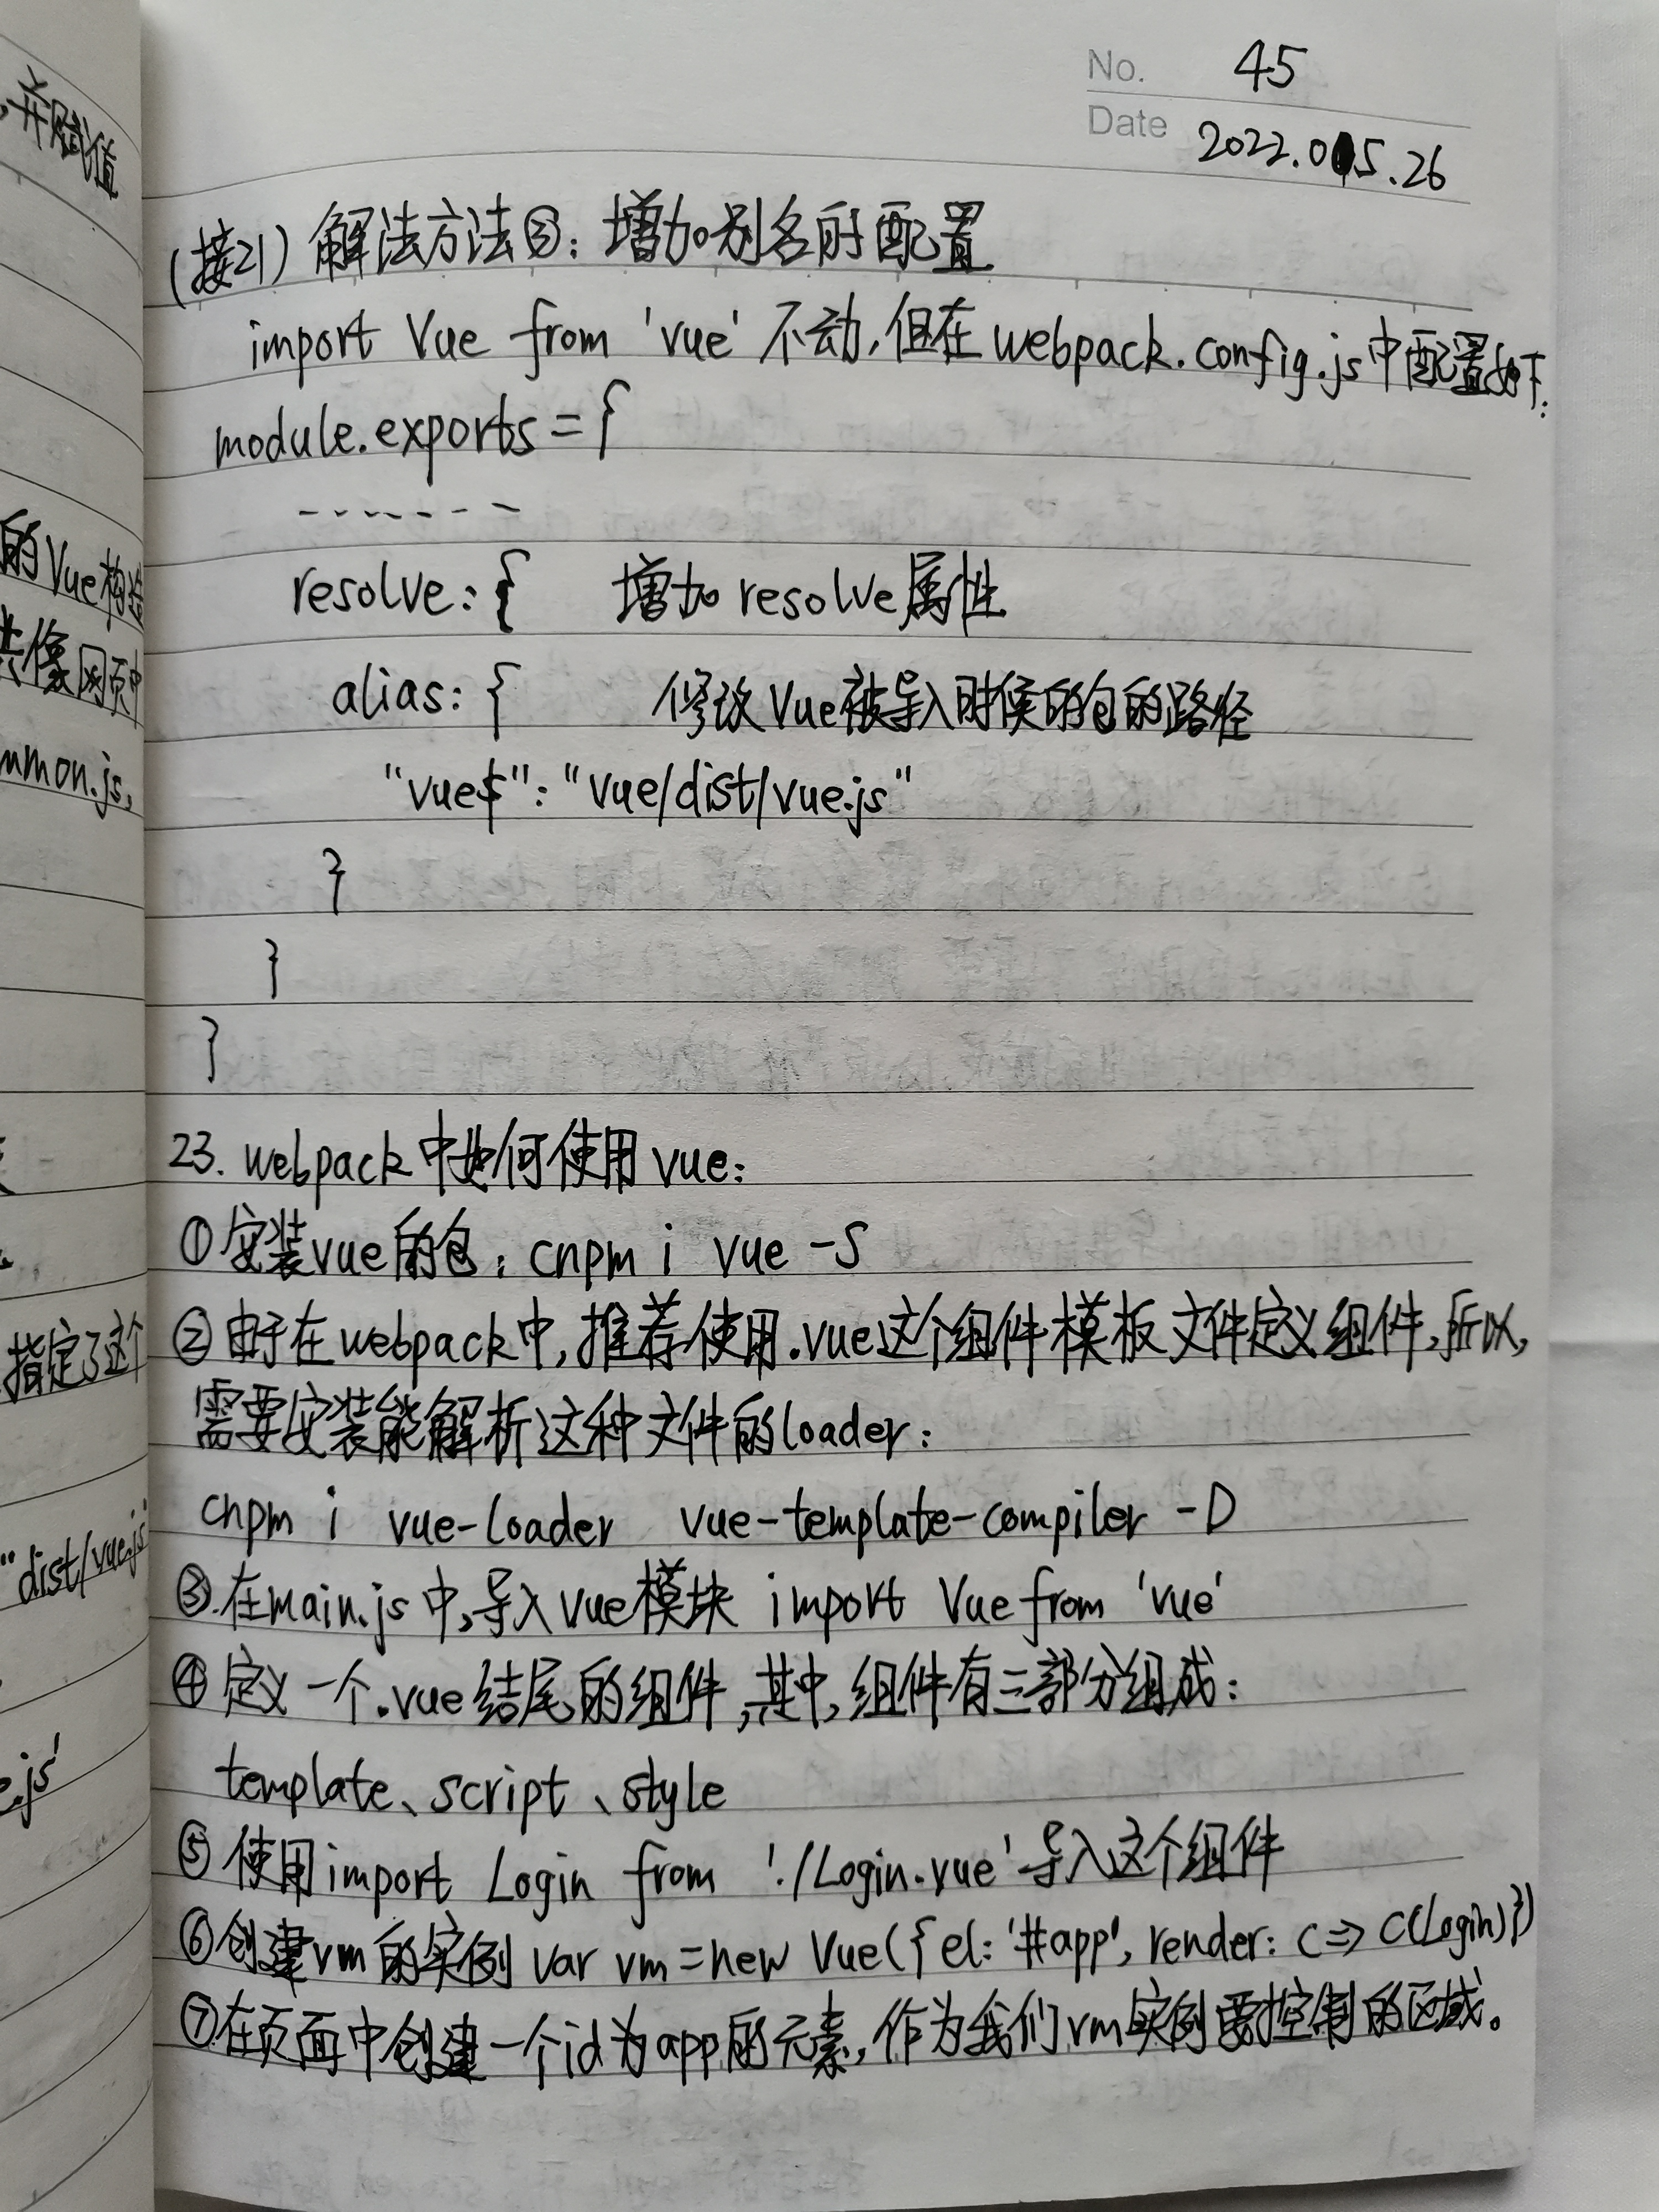 No. 45
Date 2022.05.26
(接21) 解法方法③: 增加别名的配置
import Vue from 'vue' 不动,但在webpack.config.js中配置如下:
module.exports = {
-------
resolve: { 增加resolve属性
alias: { 修改Vue被导入时候的包的路径
"vue$": "vue/dist/vue.js"
}
}
}
23. webpack中如何使用vue:
①安装vue的包: cnpm i vue -S
②由于在webpack中,推荐使用.vue这个组件模板文件定义组件,所以,
需要安装能解析这种文件的loader:
cnpm i vue-loader vue-template-compiler -D
③在main.js中,导入vue模块 import Vue from 'vue'
④定义一个.vue结尾的组件,其中,组件有三部分组成:
template、script、style
⑤使用import Login from './Login.vue'导入这个组件
⑥创建vm的实例 var vm = new Vue({ el: '#app', render: c => c(Login)})
⑦在页面中创建一个id为app的元素,作为我们vm实例要控制的区域。
,并赋值
的Vue构造
mmon.js,
指定了这个
"dist/vue.js
e.js'